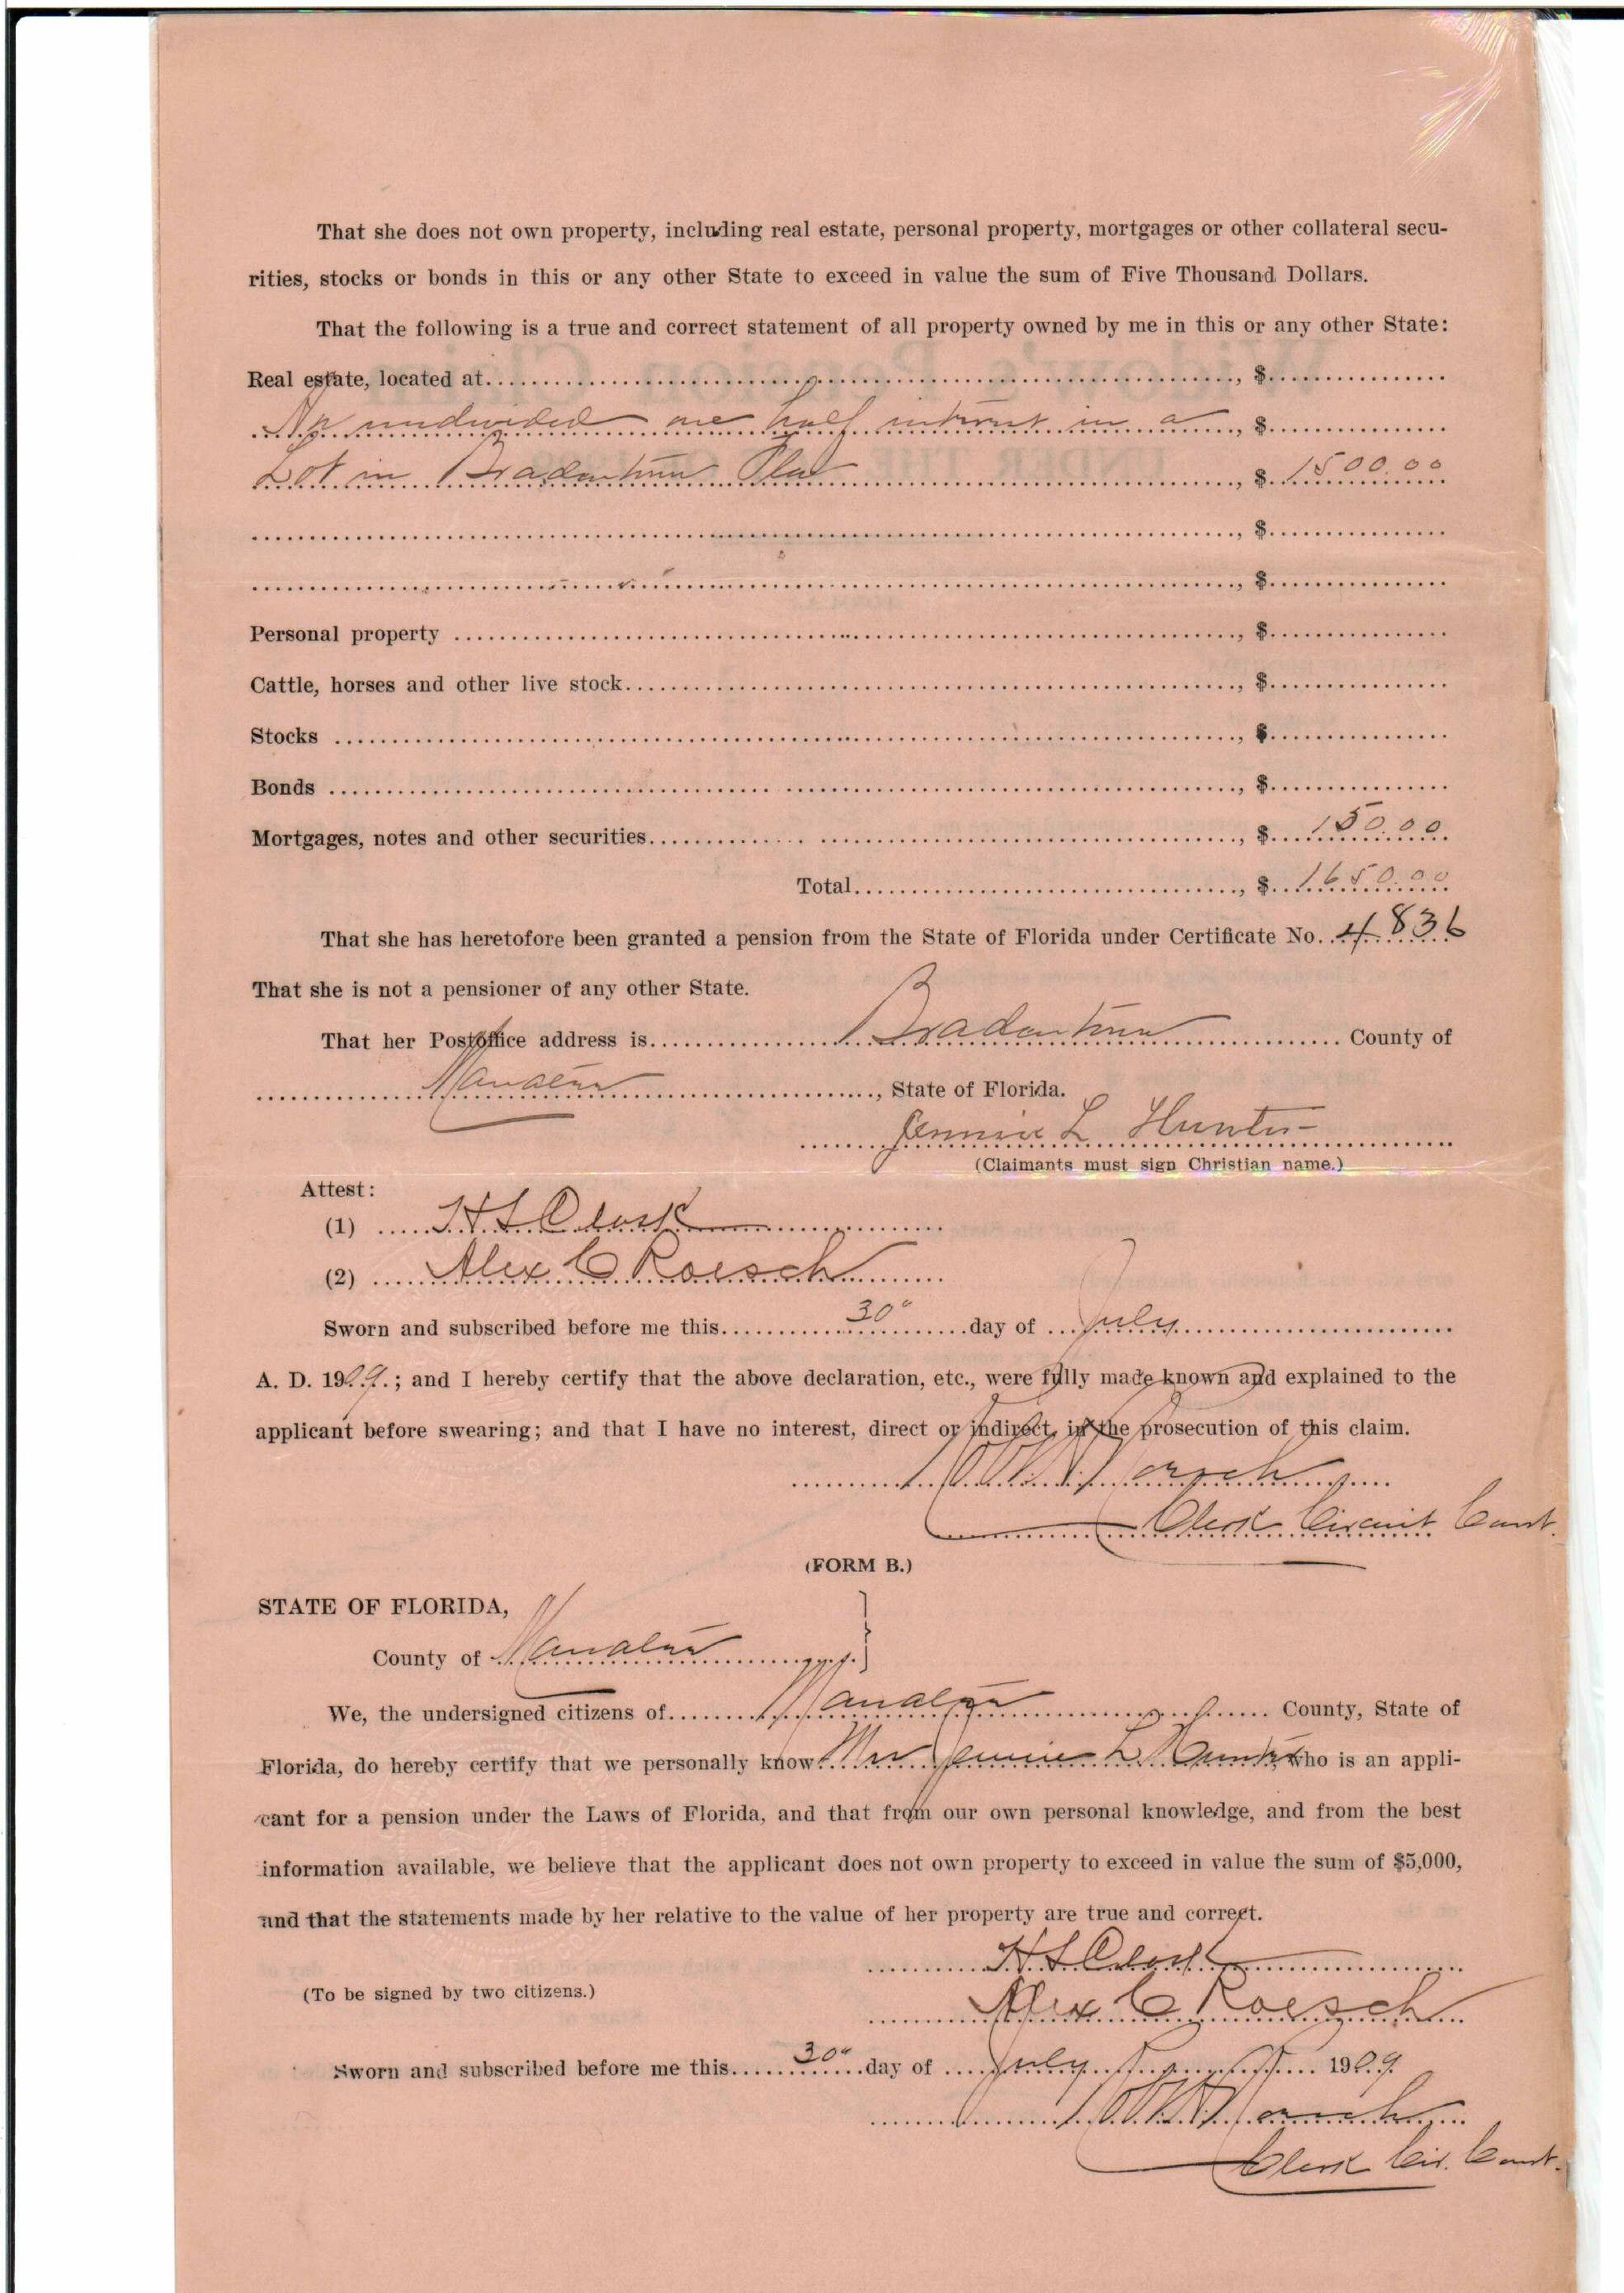 That she does not own property, including real estate, personal property, mortgages or other collateral secu-
rities, stocks or bonds in this or any other State to exceed in value the sum of Five Thousand Dollars.
That the following is a true and correct statement of all property owned by me in this or any other State:
Real estate, located at...................., $..........
An undivided one half interest in a, $..........
Lot in Bradentown Fla, $ 1500.00
...................., $..........
...................., $..........
Personal property ...................., $..........
Cattle, horses and other live stock...................., $..........
Stocks ...................., $..........
Bonds ...................., $..........
Mortgages, notes and other securities...................., $ 150.00
Total...................., $ 1650.00
That she has heretofore been granted a pension from the State of Florida under Certificate No. 4836
That she is not a pensioner of any other State.
That her Postoffice address is Bradentown County of
Manatee, State of Florida.
Jennie L Hunter
(Claimants must sign Christian name.)
Attest:
(1) H S Clark
(2) Alex C Roesch
Sworn and subscribed before me this 30" day of July
A. D. 1909.; and I hereby certify that the above declaration, etc., were fully made known and explained to the
applicant before swearing; and that I have no interest, direct or indirect, in the prosecution of this claim.
Roesch
Clerk Circuit Court.
(FORM B.)
STATE OF FLORIDA,
County of Manatee
We, the undersigned citizens of Manatee County, State of
Florida, do hereby certify that we personally know Mrs Jennie L Hunter who is an appli-
cant for a pension under the Laws of Florida, and that from our own personal knowledge, and from the best
information available, we believe that the applicant does not own property to exceed in value the sum of $5,000,
and that the statements made by her relative to the value of her property are true and correct.
H S Clark
(To be signed by two citizens.)
Alex C Roesch
Sworn and subscribed before me this 30" day of July 1909.
Roesch
Clerk Cir. Court.